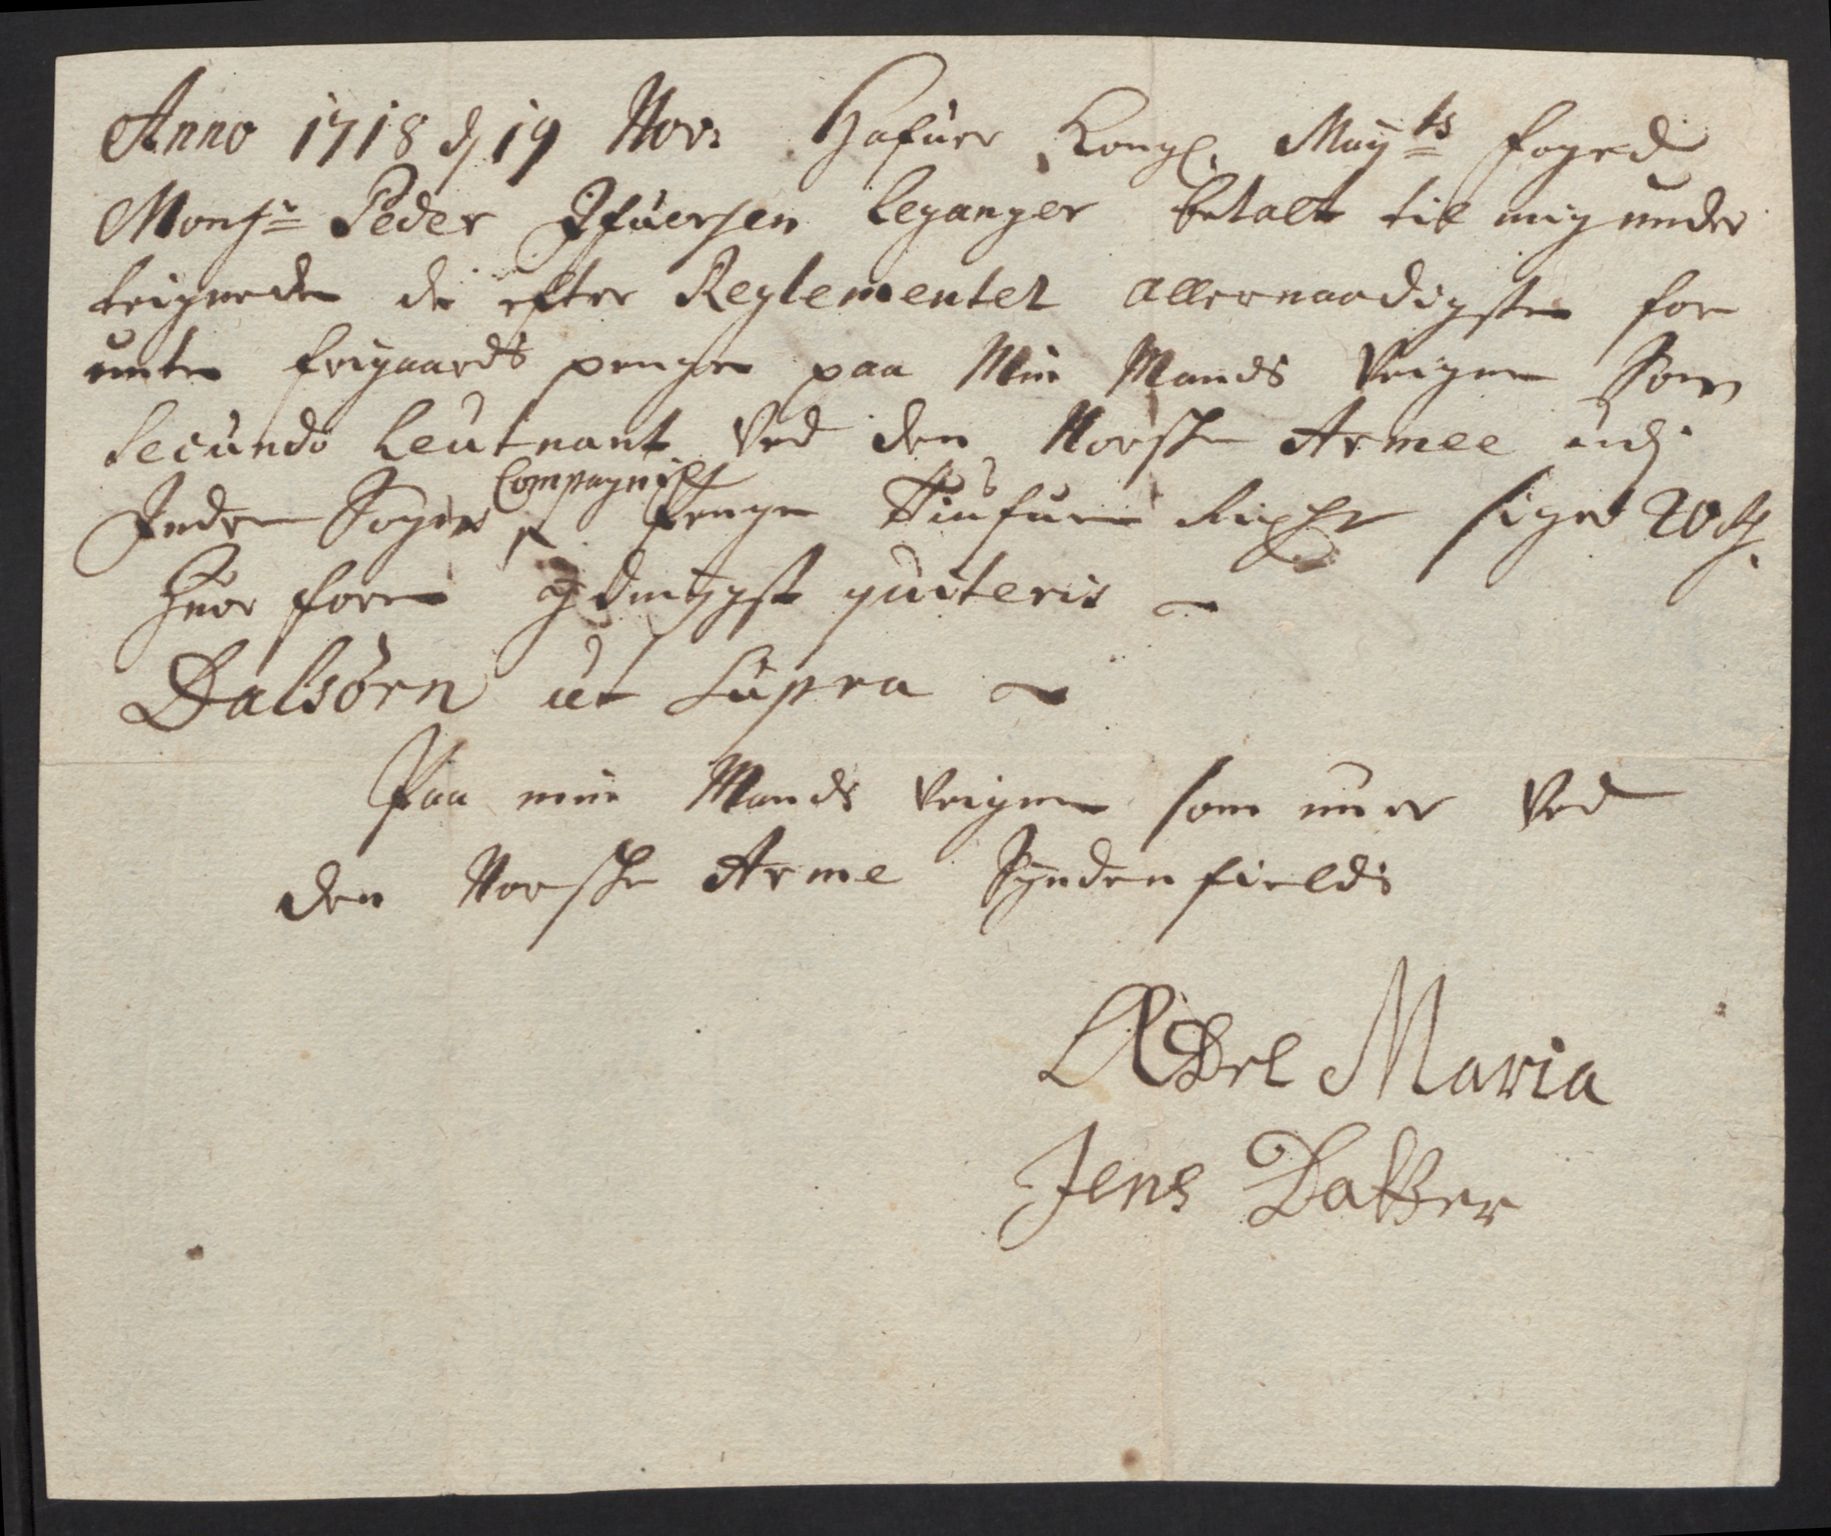 Anno 1718 d 19 Nov: Hafuer Kongl. Mayts foged
Monsr Peder Ifuersen Leganger betalt til mig under
teignede de efter Reglementet allernaadigste for
unte frigaards penge paa Min Mands Veigne Som
Secundo Leutnant Ved den Norshe Armee udj
Indre Sogns Compagniet Penge Tiufue Rixdr siger 20 Rdr.
Huor fore ydmygst quiteris
Dalsørn ut Supra
Paa min Mands Veigne som nu er Ved
den Norshe Arme Syndenfields
Ædel Maria
Jens Datter